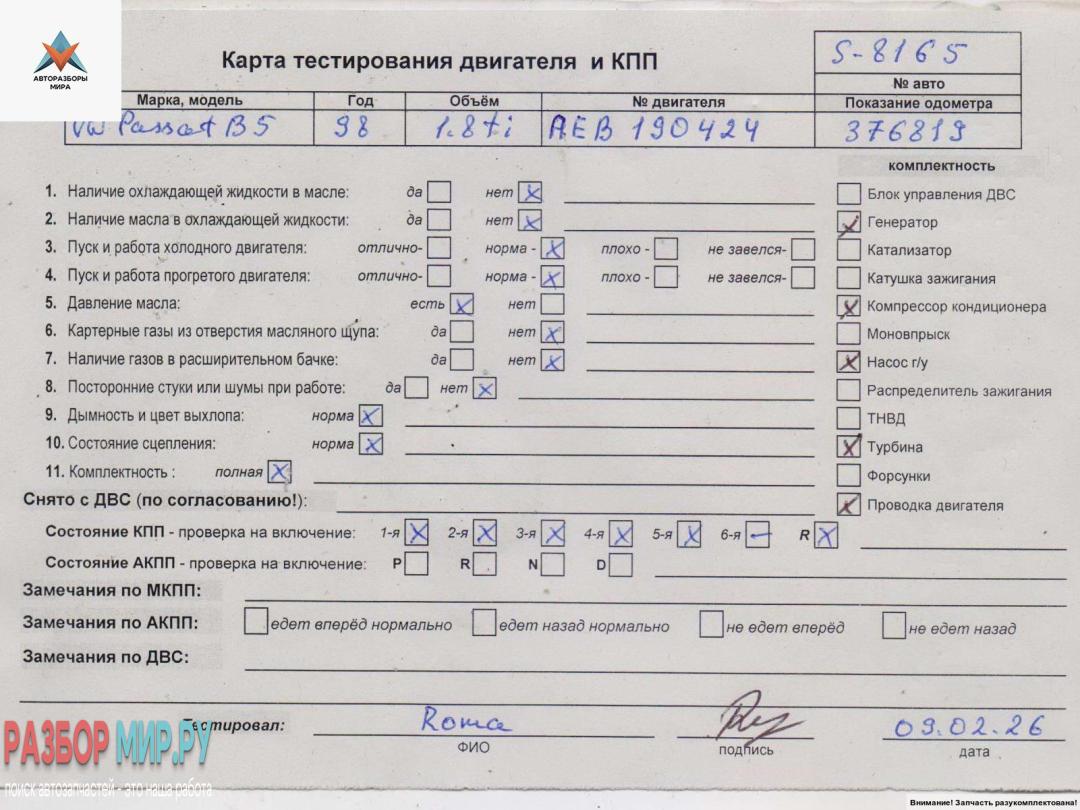 АВТОРАЗБОРЫ
МИРА
Карта тестирования двигателя и КПП
S-8165
№ авто
Марка, модель Год Объём № двигателя Показание одометра
VW Passat B5 98 1.8ti AEB 190424 376819
комплектность
1. Наличие охлаждающей жидкости в масле: да нет
Блок управления ДВС
2. Наличие масла в охлаждающей жидкости: да нет
Генератор
3. Пуск и работа холодного двигателя: отлично- норма - плохо - не завелся-
Катализатор
4. Пуск и работа прогретого двигателя: отлично- норма - плохо - не завелся-
Катушка зажигания
5. Давление масла: есть нет
Компрессор кондиционера
6. Картерные газы из отверстия масляного щупа: да нет
Моновпрыск
7. Наличие газов в расширительном бачке: да нет
Насос г/у
8. Посторонние стуки или шумы при работе: да нет
Распределитель зажигания
9. Дымность и цвет выхлопа: норма
ТНВД
10. Состояние сцепления: норма
Турбина
11. Комплектность : полная
Форсунки
Снято с ДВС (по согласованию!):
Проводка двигателя
Состояние КПП - проверка на включение: 1-я 2-я 3-я 4-я 5-я 6-я R
Состояние АКПП - проверка на включение: P R N D
Замечания по МКПП:
Замечания по АКПП: едет вперёд нормально едет назад нормально не едет вперёд не едет назад
Замечания по ДВС:
Тестировал: Roma 09.02.26
ФИО подпись дата
РАЗБОРМИР.РУ
поиск автозапчастей - это наша работа
Внимание! Запчасть разукомплектована!